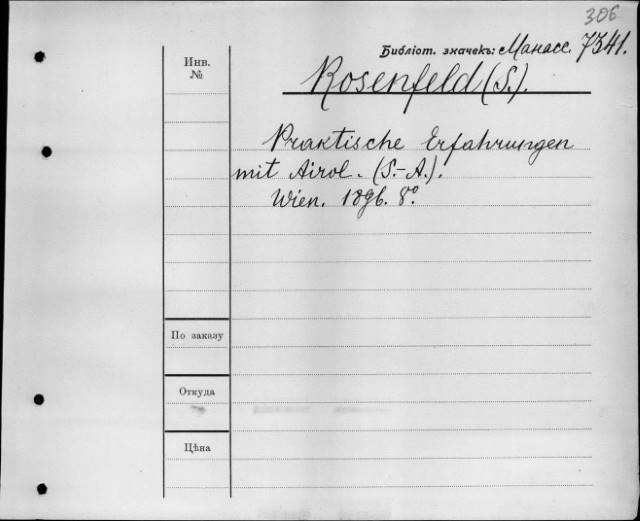 306
Библіот. значекъ: Манасс. 7341.
Инв.
№
Rosenfeld (S.).
Praktische Erfahrungen
mit Airol. (S.-A.).
Wien. 1896. 8º.
По заказу
Откуда
Цѣна